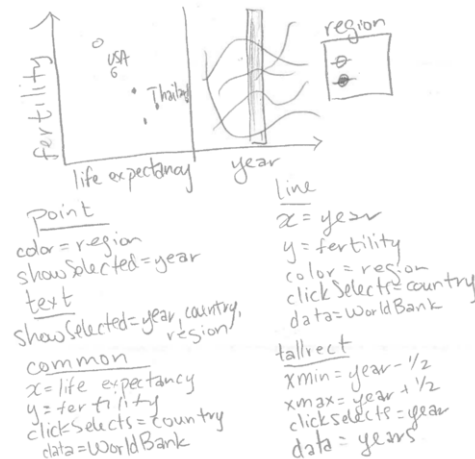 region
fertility
USA
Thailand
life expectancy
year
Point
color = region
showSelected = year
text
showSelected = year, country,
region
common
x = life expectancy
y = fertility
clickSelects = country
data = WorldBank
Line
x = year
y = fertility
color = region
clickSelects = country
data = WorldBank
tallrect
xmin = year - 1/2
xmax = year + 1/2
clickSelects = year
data = years